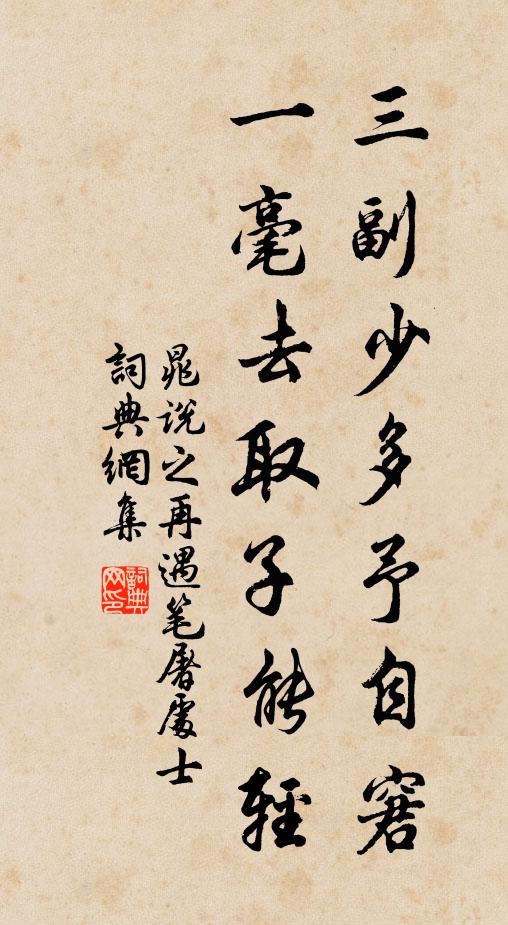 三副少多予自窘
一毫去取子能輕
晁说之再遇笔屠處士
詞典網集
詞典网印